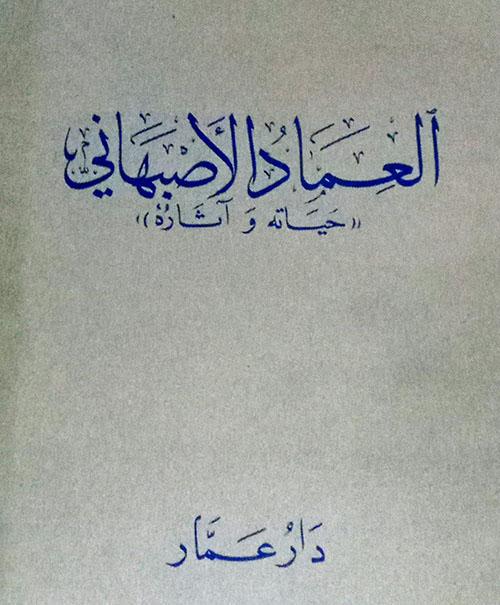 العِمَادُ الأَصْبَهَاني
((حَيَاته وَ آثَارهُ))
دَارُ عَمَّار